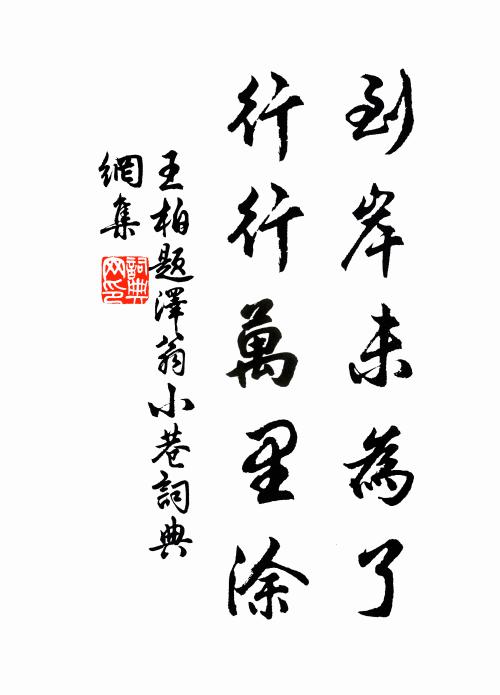 到岸未為了
行行萬里涂
王柏題澤翁小巷詞典
網集
詞典
網印